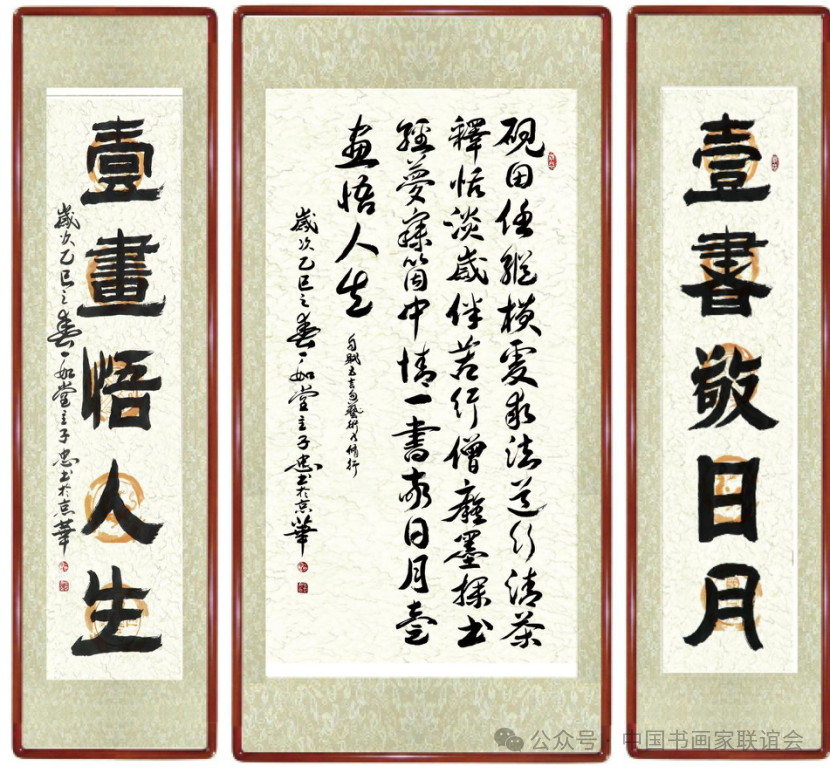 壹書敬日月
硯田任縱橫虔求法道行清茶
釋恬淡歲伴苦行僧磨墨探书
經夢寐箇中情一書敬日月壹
畫悟人生
自賦五言藝術乃修行
歲次乙巳之春一如堂主子忠书於京華
壹畫悟人生
歲次乙巳之春一如堂主子忠书於京華
公众号·中国书画家联谊会